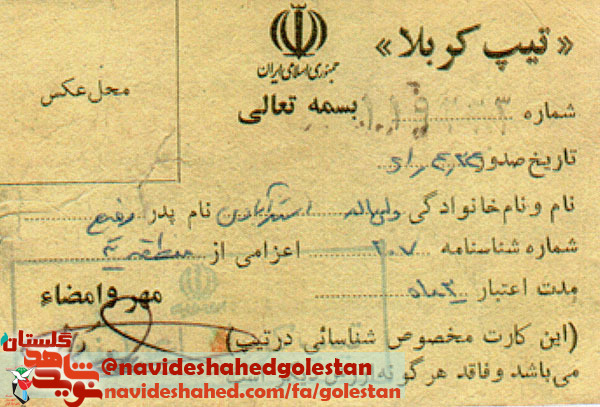 «تیپ کربلا»
جمهوری اسلامی ایران
بسمه تعالی
محل عکس
شماره
تاریخ صدور
نام و نام خانوادگی ولی اله استرآبادی نام پدر رفیع
شماره شناسنامه ۲۰۷ اعزامی از منطقه ۳
مدت اعتبار ۳ ماه
مهر و امضاء
(این کارت مخصوص شناسائی در تیپ)
می باشد و فاقد هر گونه
نوید شاهد گلستان
@navideshahedgolestan
navideshahed.com/fa/golestan